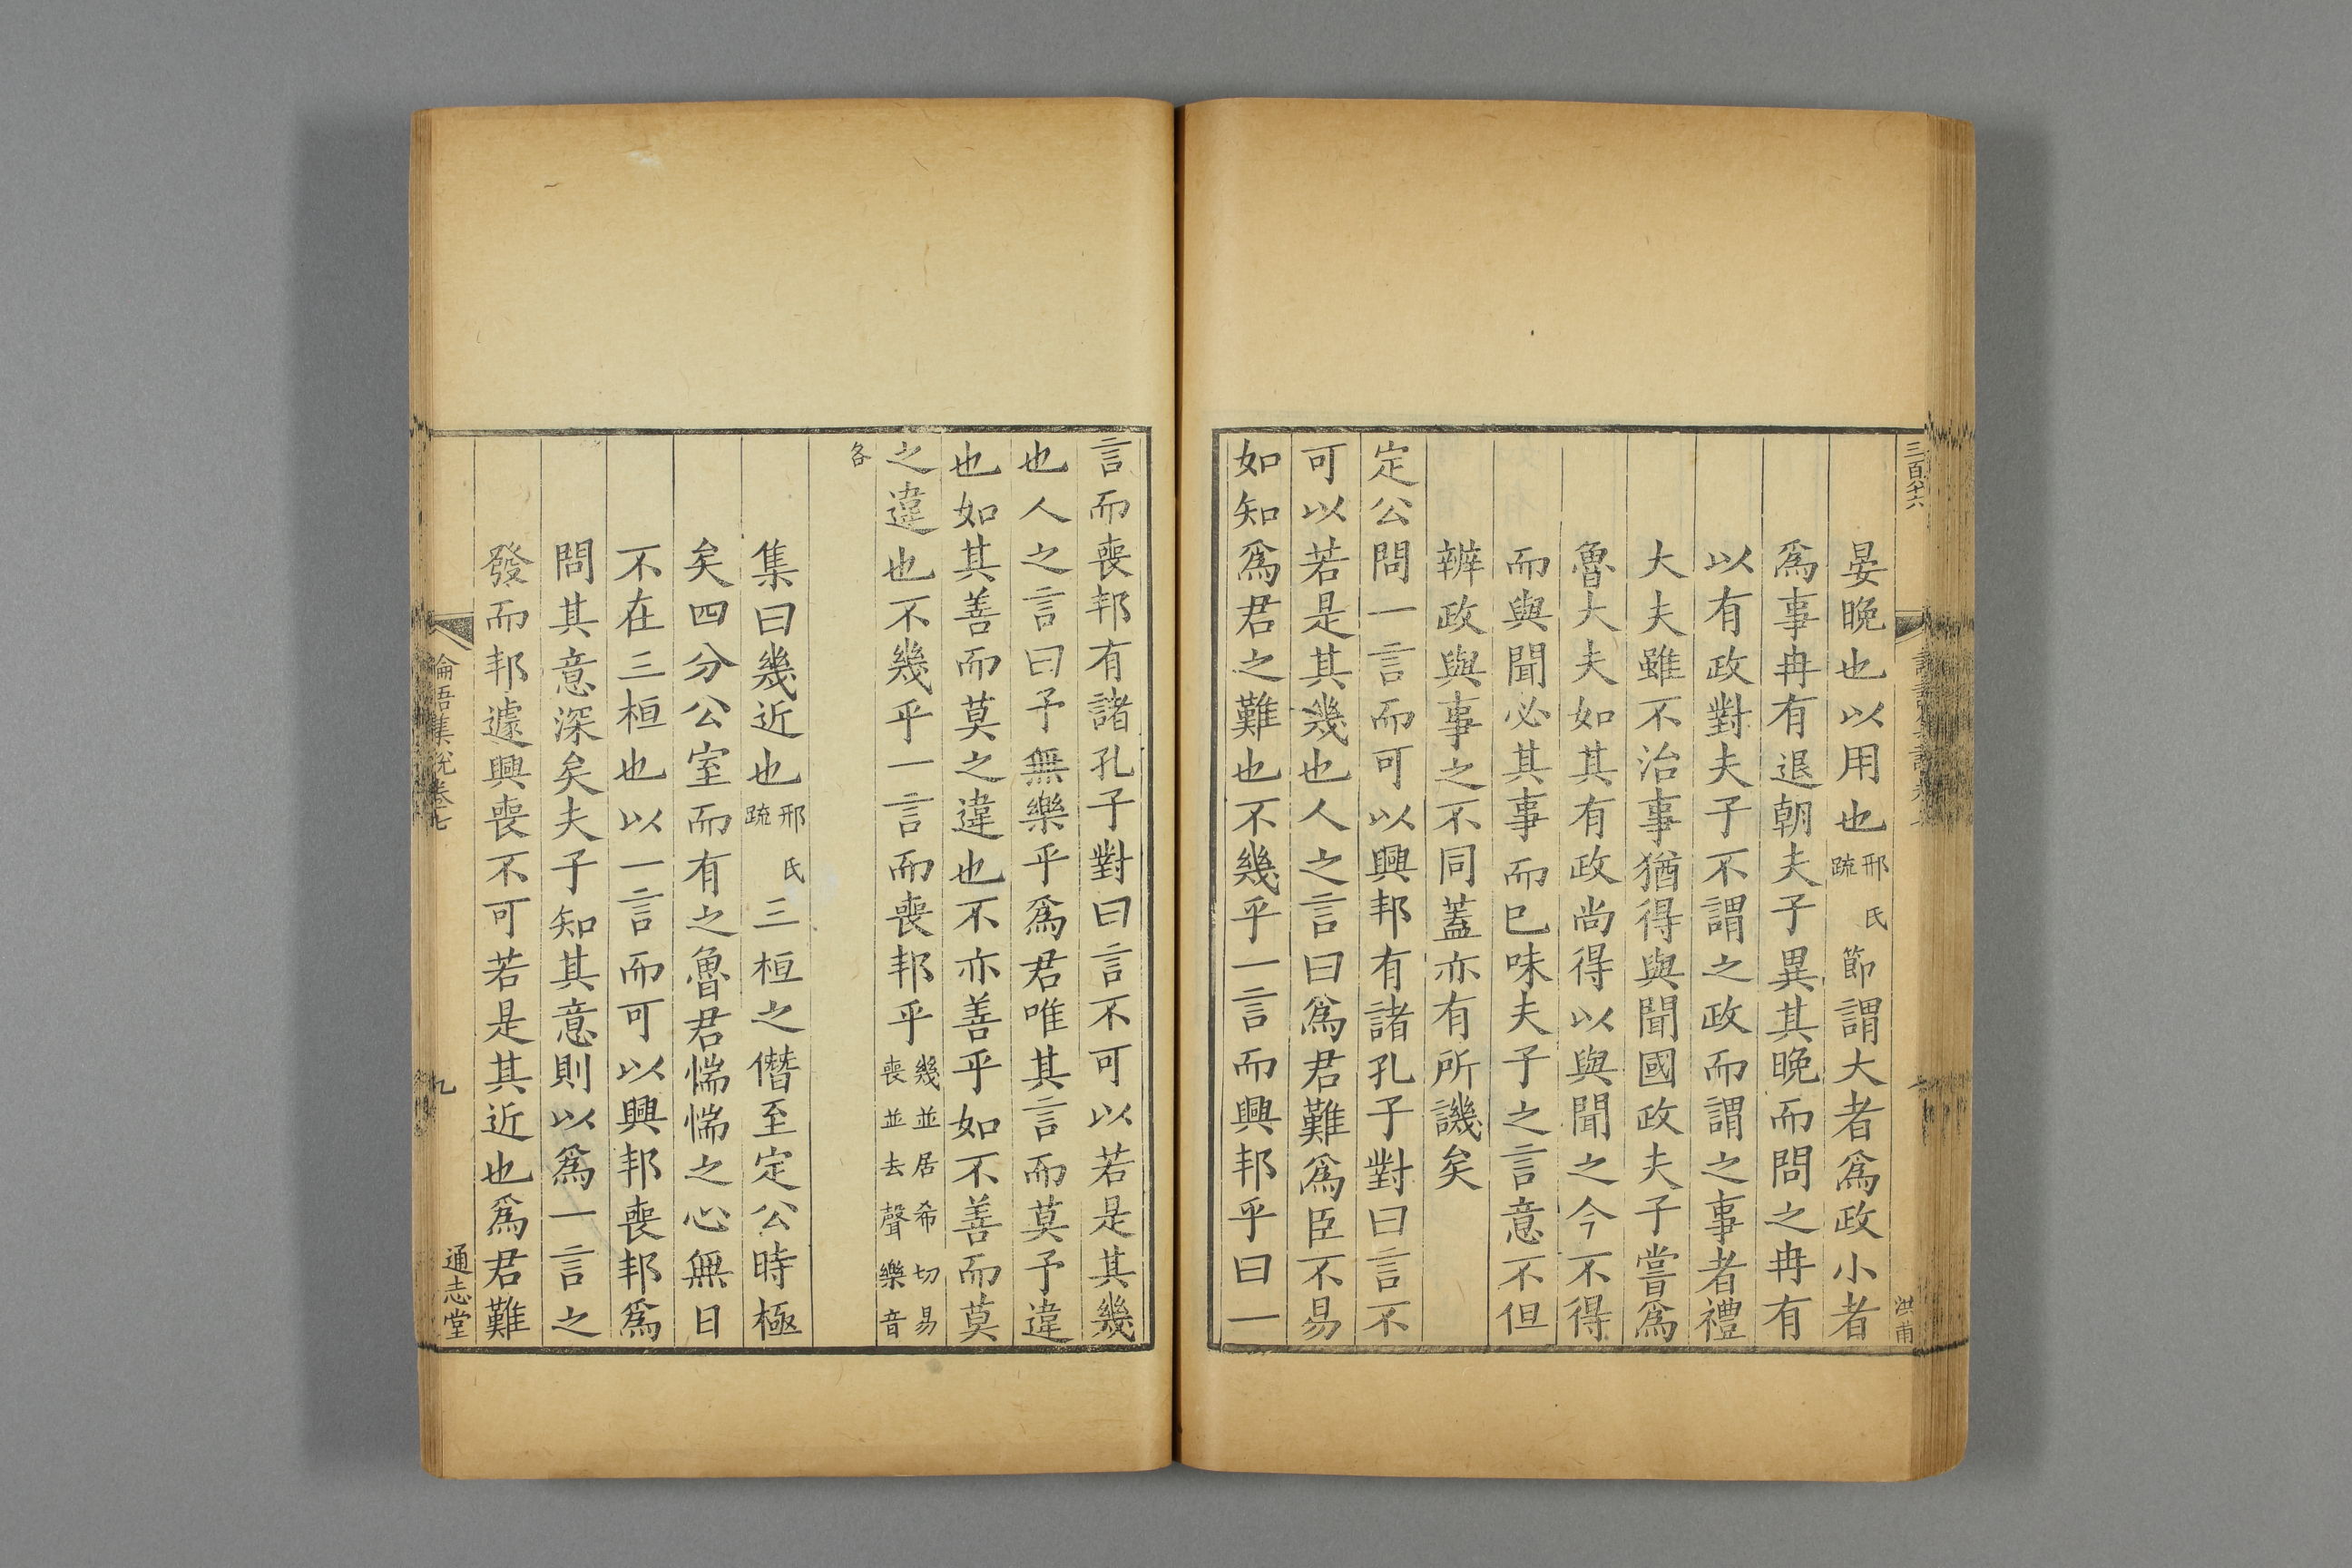 三百八十六
洪甫
晏晚也以用也邢氏疏節謂大者爲政小者
爲事冉有退朝夫子異其晚而問之冉有
以有政對夫子不謂之政而謂之事者禮
大夫雖不治事猶得與聞國政夫子嘗爲
魯大夫如其有政尚得以與聞之今不得
而與聞必其事而已味夫子之言意不但
辨政與事之不同蓋亦有所譏矣
定公問一言而可以興邦有諸孔子對曰言不
可以若是其幾也人之言曰爲君難爲臣不易
如知爲君之難也不幾乎一言而興邦乎曰一
言而喪邦有諸孔子對曰言不可以若是其幾
也人之言曰予無樂乎爲君唯其言而莫予違
也如其善而莫之違也不亦善乎如不善而莫
之違也不幾乎一言而喪邦乎幾並居希切易喪並去聲樂音
各
集曰幾近也邢氏疏三桓之僭至定公時極
矣四分公室而有之魯君惴惴之心無日
不在三桓也以一言而可以興邦喪邦爲
問其意深矣夫子知其意則以爲一言之
發而邦遽興喪不可若是其近也爲君難
論語集說卷七
九
通志堂